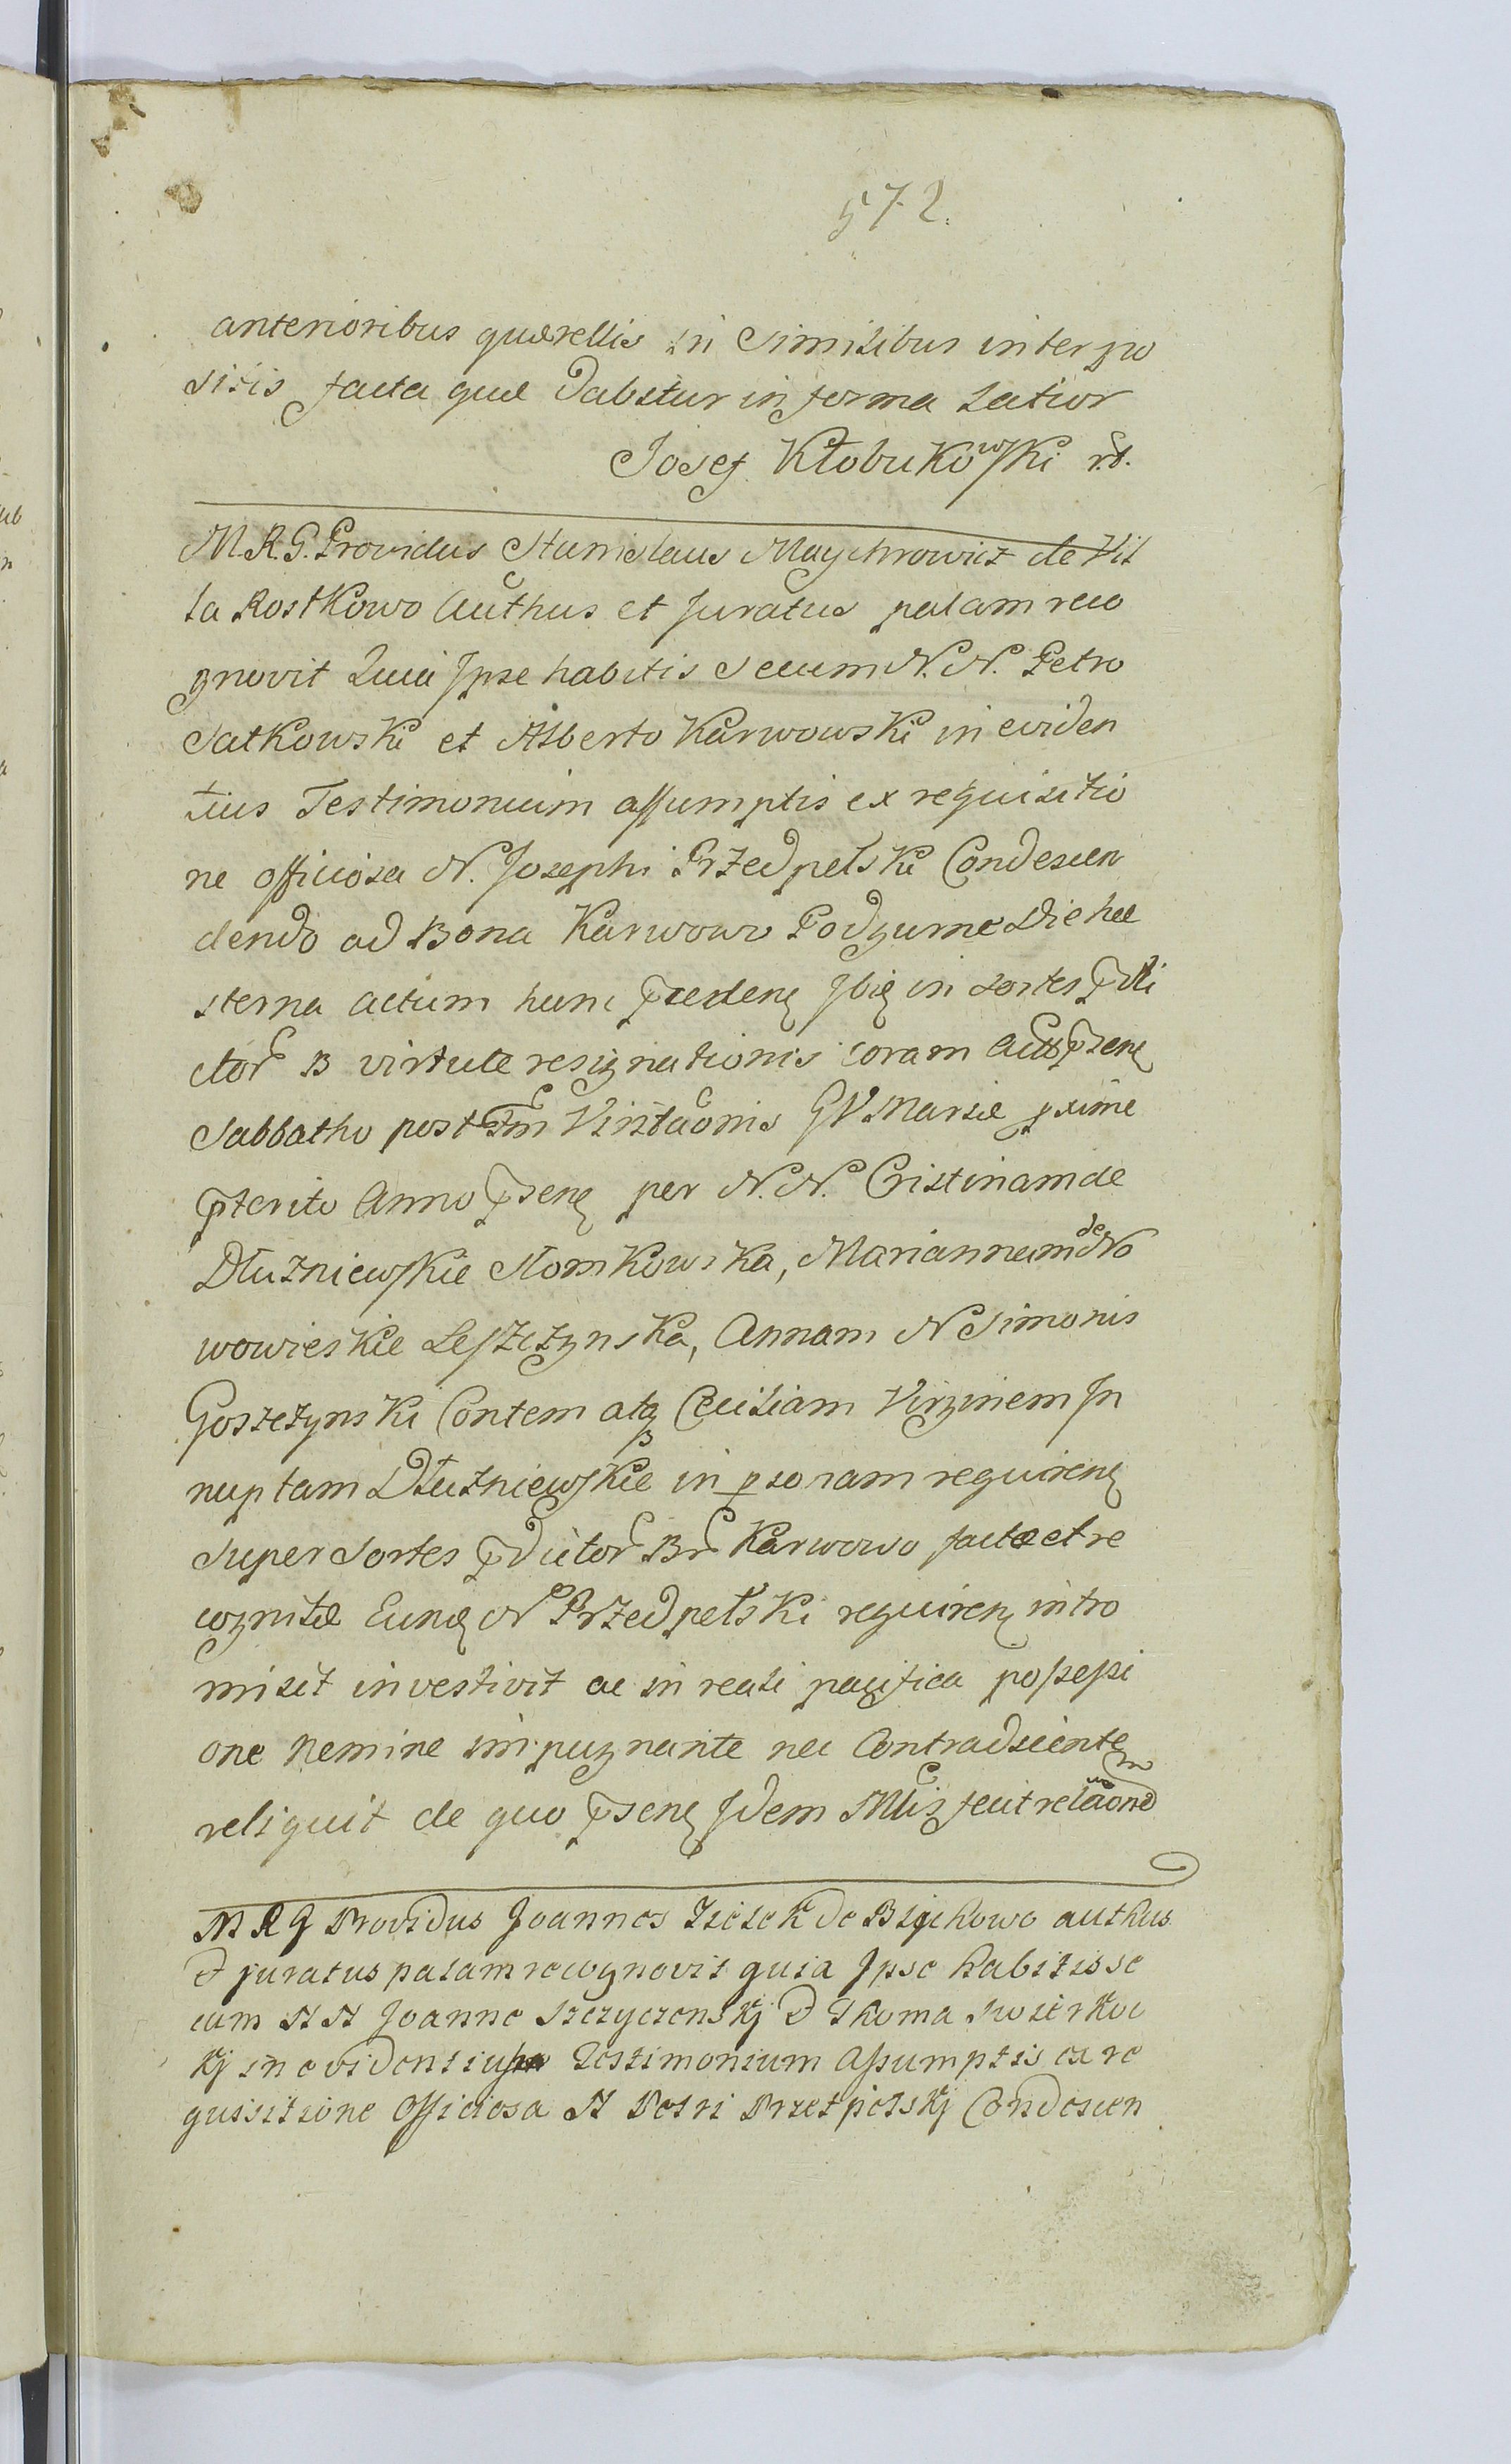 572.
anterioribus quærellis in Similibus interpo
sitis facta quæ dabitur in forma Latior
Josef Kłobukowski rd.
M.R.G. Providus Stanislaus Maychrowicz de Vil
la Rostkowo Authus et Juratus palam reco
gnovit Quia Ipse habitis Secum N.N. Petro
Satkowski et Alberto Karwowski in eviden
tius Testimonium assumptis ex requisitio
ne officiosa N. Josephi Przedpełski Condescen
dendo ad Bona Karwowo Podgurne Die he
sterna actum hunc præceden Ibiq in Sortes prædi
ctor B virtute resignationis coram Actis prsen
Sabbatho post Fm Visitaonis GV Mariæ pxime
prterito Anno prsen per N.N. Cristinam de
Dłuzniewskie Słomkowska, Mariannam de No
wowieskie Leszczynska, Annam N Simonis
Goszczynski Contem atq Ceciliam Virginem In
nuptam Dłuzniewskie in psonam requiren
super Sortes prdictor Br Karwowo factæ et re
cognitæ Eund N Przedpełski requiren intro
misit investivit ac in reali pacifica possessi
one nemine impugnante nec Contradicente
reliquit de quo prsen Idem Mlis fecit relaonem
M R G Providus Joannes Izicek de Bijkowo authus
et juratus palam recognovit quia Ipse habitis se
cum N N Joanne Szczyczenskj et Thoma Swierkoc
kj in evidentius Testimonium assumptis ex re
quisitione Officiosa N Petri Przetpiełskj Condescen